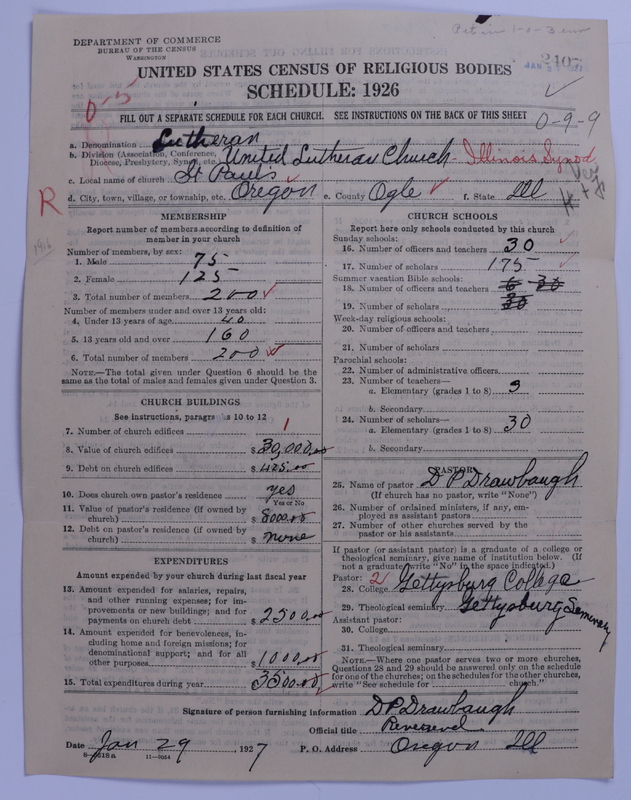 DEPARTMENT OF COMMERCE
BUREAU OF THE CENSUS
WASHINGTON
2407
UNITED STATES CENSUS OF RELIGIOUS BODIES
SCHEDULE: 1926
FILL OUT A SEPARATE SCHEDULE FOR EACH CHURCH. SEE INSTRUCTIONS ON THE BACK OF THIS SHEET
0-9-9
a. Denomination Lutheran
b. Division (Association, Conference, Diocese, Presbytery, Synod, etc. United Lutheran Church - Illinois Synod
c. Local name of church St Paul's
d. City, town, village, or township, etc. Oregon e. County Ogle f. State Ill
R
1916
MEMBERSHIP
Report number of members according to definition of
member in your church
Number of members, by sex:
1. Male 75
2. Female 125
3. Total number of members 200
Number of members under and over 13 years old:
4. Under 13 years of age 40
5. 13 years old and over 160
6. Total number of members 200
NOTE.—The total given under Question 6 should be
same as the total of males and females given under Question 3.
CHURCH BUILDINGS
See instructions, paragraphs 10 to 12
7. Number of church edifices 1
8. Value of church edifices $ 30,000.00
9. Debt on church edifices $ 425.00
10. Does church own pastor's residence yes
Yes or No
11. Value of pastor's residence (if owned by
church) $ 8000.00
12. Debt on pastor's residence (if owned by
church) $ none
EXPENDITURES
Amount expended by your church during last fiscal year
13. Amount expended for salaries, repairs,
and other running expenses; for im-
provements or new buildings; and for
payments on church debt $ 2500.00
14. Amount expended for benevolences, in-
cluding home and foreign missions; for
denominational support; and for all
other purposes $ 1000.00
15. Total expenditures during year $ 3500.00
CHURCH SCHOOLS
Report here only schools conducted by this church
Sunday schools:
16. Number of officers and teachers 30
17. Number of scholars 175
Summer vacation Bible schools:
18. Number of officers and teachers
19. Number of scholars
Week-day religious schools:
20. Number of officers and teachers
21. Number of scholars
Parochial schools:
22. Number of administrative officers
23. Number of teachers—
a. Elementary (grades 1 to 8) 3
b. Secondary
24. Number of scholars—
a. Elementary (grades 1 to 8) 30
b. Secondary
PASTOR
25. Name of pastor D P Drawbaugh
(If church has no pastor, write "None")
26. Number of ordained ministers, if any, em-
ployed as assistant pastors
27. Number of other churches served by the
pastor or his assistants
If pastor (or assistant pastor) is a graduate of a college or
theological seminary, give name of institution below. (If
not a graduate write "No" in the space indicated.)
Pastor: 2
28. College Gettysburg College
29. Theological seminary Gettysburg Seminary
Assistant pastor:
30. College
31. Theological seminary
NOTE.—Where one pastor serves two or more churches,
Questions 28 and 29 should be answered only on the schedule
for one of the churches; on the schedules for the other churches,
write "See schedule for church."
Signature of person furnishing information D P Drawbaugh
Official title Reverend
Date Jan 29, 1927 P. O. Address Oregon Ill
11—9054